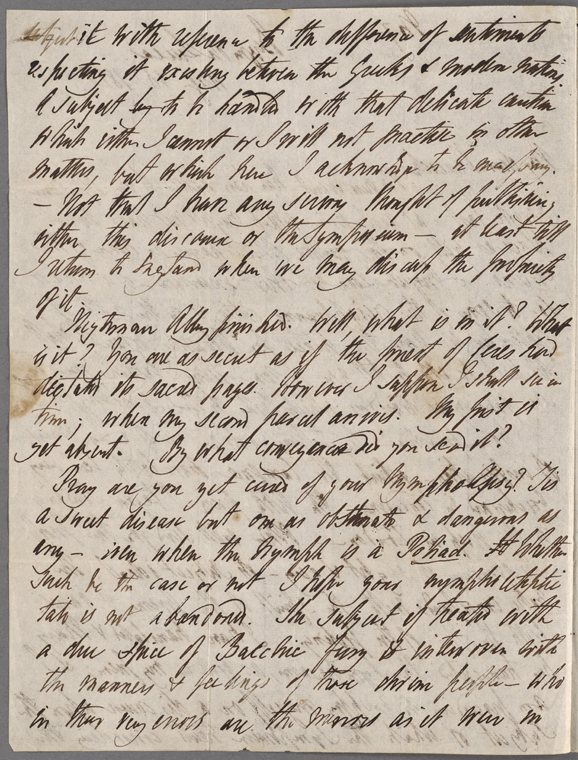 subject it with reference to the difference of sentiments
respecting it existing between the Greeks & modern nations.
A subject to be handled with that delicate caution
which either I cannot or I will not practise in other
matters, but which here I acknowledge to be necessary.
— Not that I have any serious thought of publishing
either this discourse or the Symposium — at least till
I return to England when we may discuss the propriety
of it.
Nightmare Abbey finished. Well, what is in it? What
is it? You are as secret as if the priest of Ceres had
dictated its sacred pages. However I suppose I shall see in
time; when my second parcel arrives. My first is
yet absent. By what conveyance did you send it?
Pray are you yet cured of your Nympholepsy? Tis
a sweet disease but one as obstinate & dangerous as
any — even when the Nymph is a Poliad. Whether
such be the case or not I hope your nympholeptic
tale is not abandoned. The subject if treated with
a due spice of Bacchic fury & interwoven with
the manners & feelings of those divine people — who
in their very errors are the mirrors as it were in